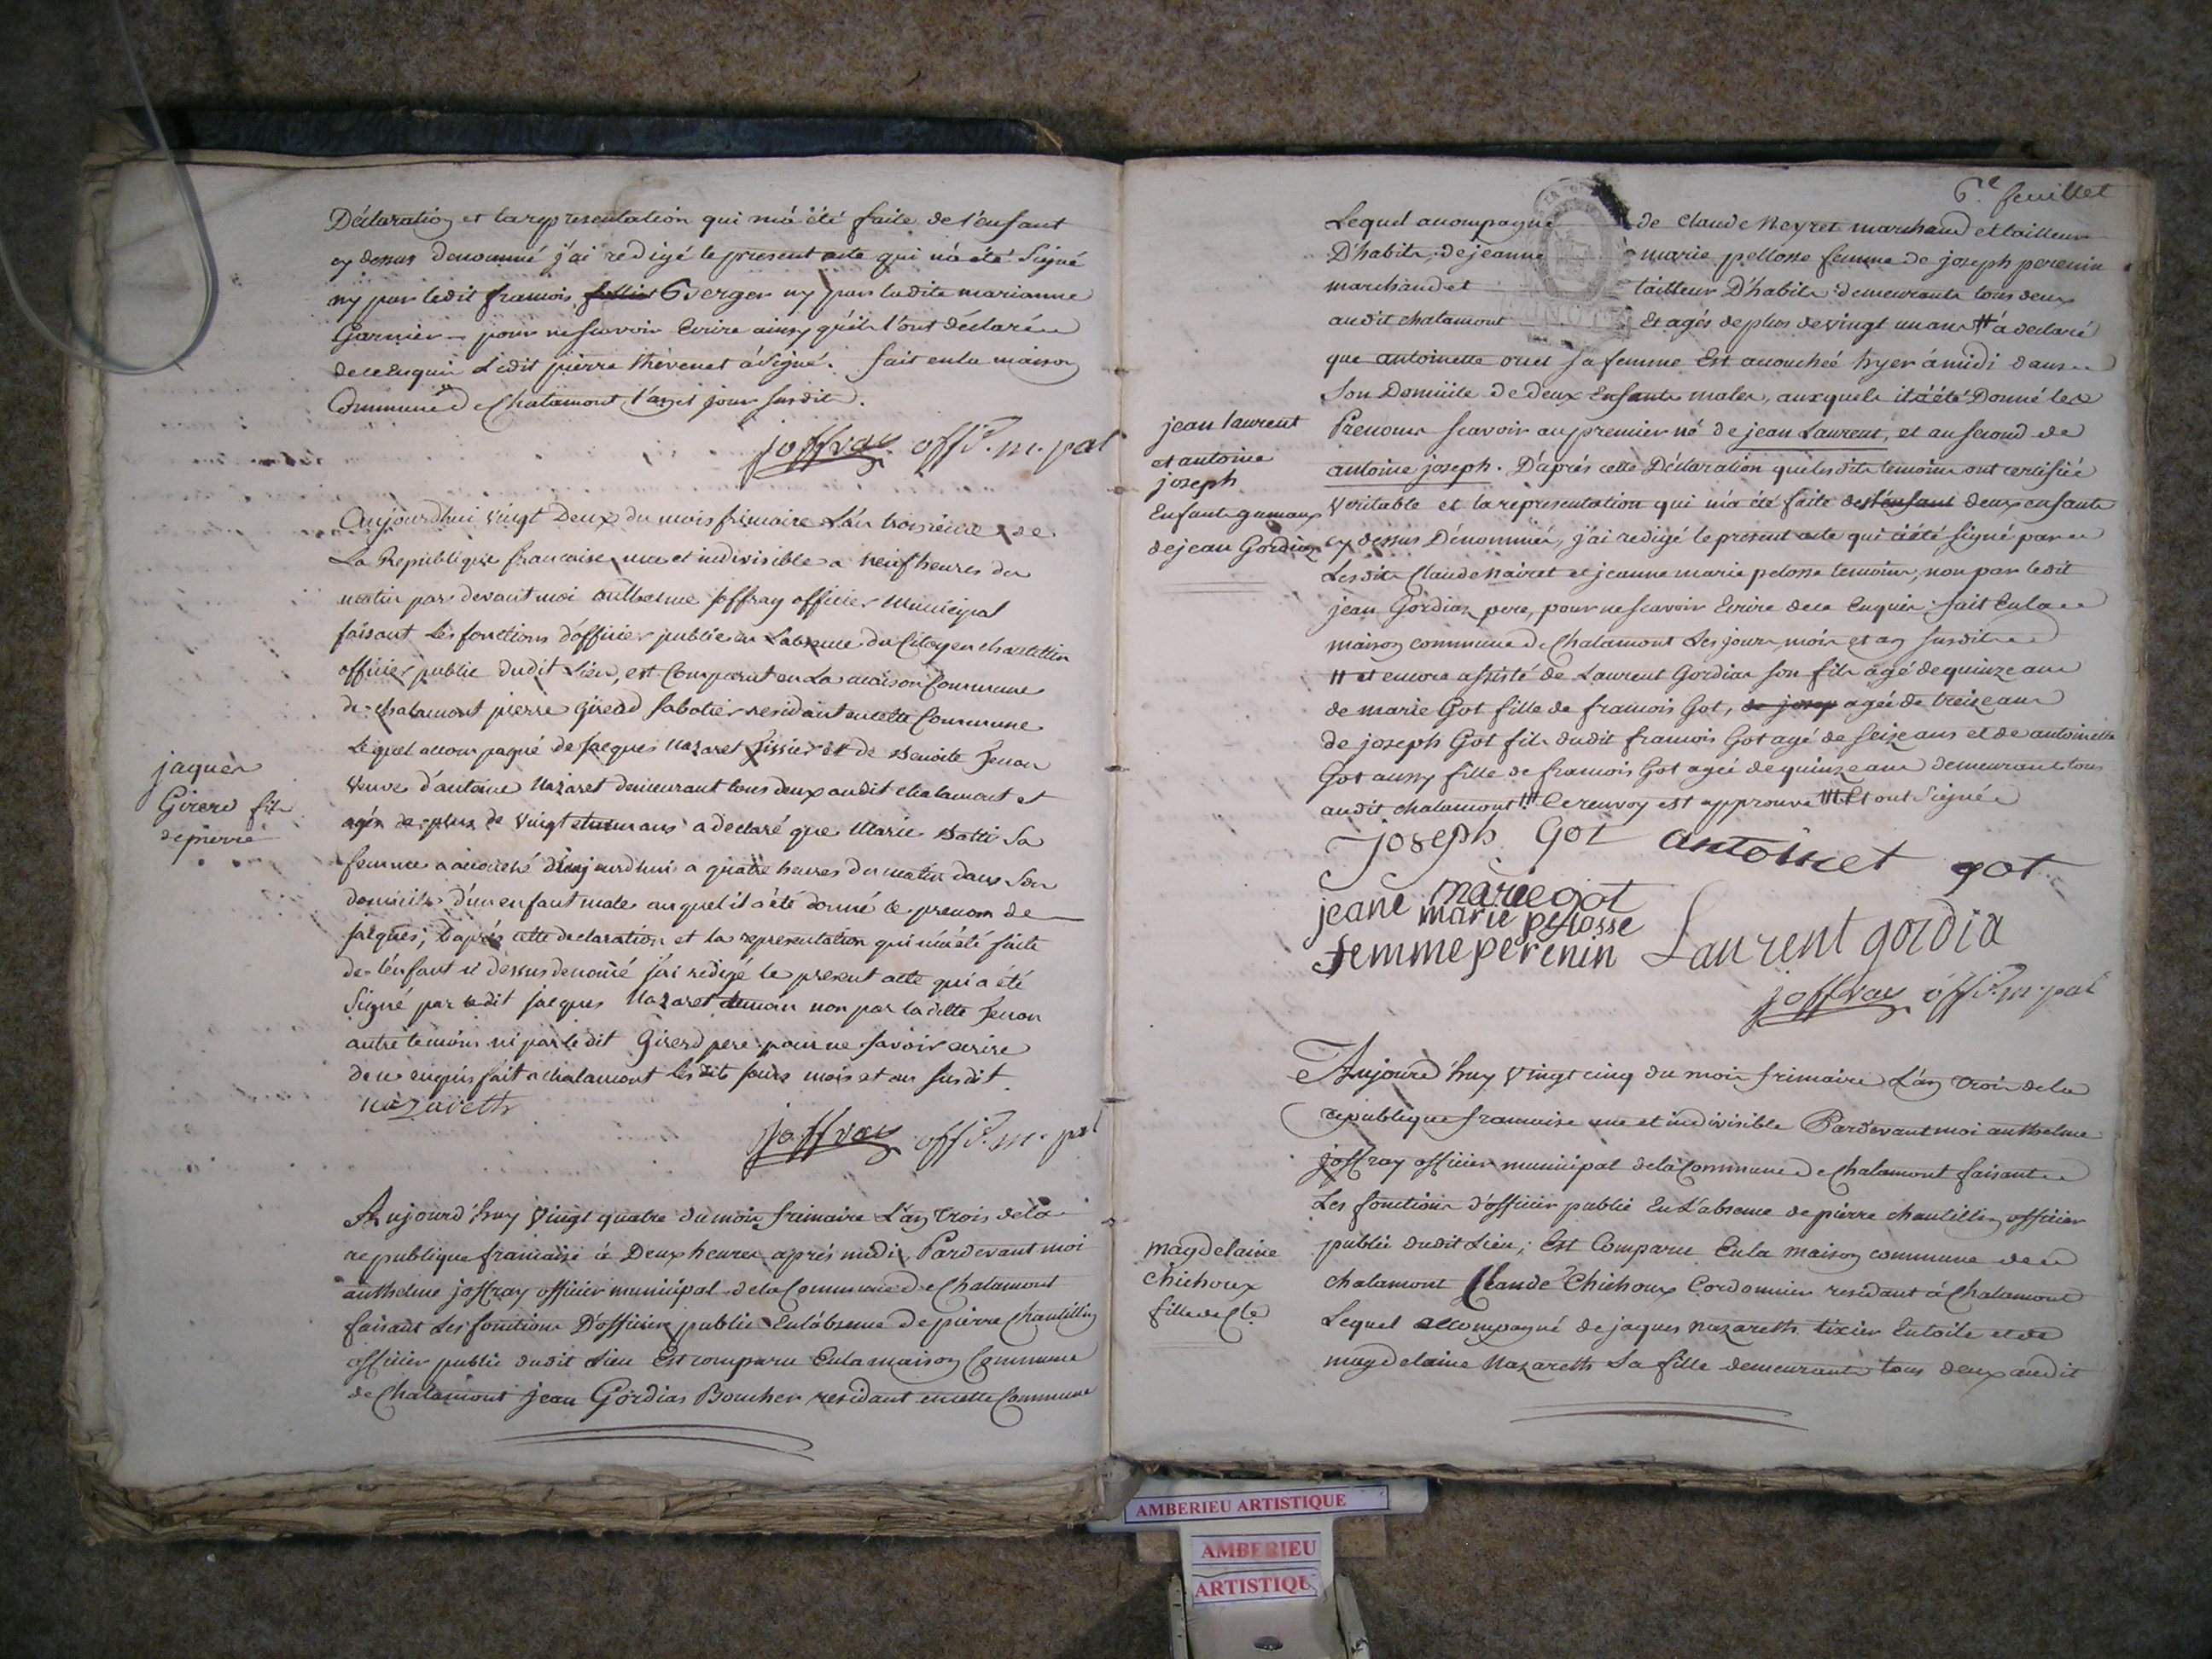 Déclaration et la representation qui m'a été faite de l'enfant
cy dessus denommé j'ai redigé le present acte qui n'a été Signé
ny par ledit francois Verger ny par ladite marianne
Garnier pour ne scavoir Ecrire ainsy qu'ils l'ont déclaré
de ce Enquis Ledit pierre thevenet à Signé. fait en la maison
Commune de Chalamont l'an et jour susdit.
joffray offr. m. pal
Aujourdhui vingt Deux du mois frimaire L'an troisieme de
La Republique francaise une et indivisible a neuf heures du
matin par devant moi anthelme joffray officier Municipal
faisant Les fonctions d'officier public en L'absence du Citoyen chantellin
officier public dudit Lieu, est Comparut en La maison Commune
de chalamont pierre Girerd Sabotier residant en cette Commune
Lequel accompagné de Jacques Nazaret tissier et de Benoite
veuve d'antoine Nazaret demeurant tous deux audit chalamont et
agés de plus de vingt et un ans a declaré que Marie Sa
jaques
Girerd fils
de pierre
femme a accouché aujourdhui a quatre heures du matin dans Son
domicile d'un enfant male auquel il a été donné le prenom de
jacques; D'après cette declaration et la representation qui m'a été faite
de l'enfant ci dessus denomé j'ai redigé le present acte qui a été
Signé par ledit jacques Nazaret temoin non par la ditte
autre temoins ni par ledit Girerd pere pour ne savoir ecrire
de ce enquis fait a chalamont les dits jours mois et an susdit.
nazareth
joffray offr. m. pal
Aujourd'huy vingt quatre du mois frimaire L'an trois de la
republique francaise à Deux heures après midi, Pardevant moi
anthelme joffray officier municipal de la Commune de Chalamont
faisant Les fonctions D'officier public En l'absence de pierre Chantillin
officier public dudit Lieu Est comparu En la maison Commune
de Chalamont jean Gordias Boucher residant en cette Commune
6.e feuillet
Lequel accompagné de Claude Neyret marchand et tailleur
D'habits de jeanne marie pellosse femme de joseph perenin
marchand et tailleur D'habits demeurants tous deux
audit chalamont Et agés de plus de vingt un ans # à déclaré
que antoinette sa femme Est accouchée hyer à midi dans
Son Domicile de deux Enfants males, auxquels il à été Donné les
jean laurent
et antoine
joseph
Enfants gumaux
de jean Gordias
Prenoms scavoir au premier né de jean Laurent, et au second de
antoine joseph. D'après cette Déclaration que lesdits temoins ont certifiée
veritable et la representation qui m'a été faite des l'enfant deux enfants
cy dessus Dénommés, j'ai redigé le present acte qui à été Signé par
Lesdits Claude nairet et jeanne marie pelosse temoins, non par ledit
jean Gordias pere, pour ne scavoir Ecrire de ce Enquis. fait En la
maison commune de Chalamont Les jours, mois et an susdits
# et encore assisté de Laurent Gordias son fils agé de quinze ans
de marie Got fille de francois Got, de josep agée de treize ans
de joseph Got fils dudit francois Got agé de seize ans et de antoinette
Got aussy fille de francois Got agée de quinze ans demeurants tous
audit chalamont # Ce renvoy est approuvé # Et ont Signés
joseph Got antoinet got
marie got
jeane marie pelosse
femme perenin Laurent gordia
joffray offr. m. pal
Aujourd'huy vingt cinq du mois frimaire L'an trois de la
republique francaise une et indivisible Pardevant moi anthelme
joffray officier municipal de la Commune de Chalamont faisant
Les fonctions d'officier public En L'absence de pierre chantillin officier
magdelaine
chichoux
fille de Cl.e
public dudit Lieu; Est Comparu En la maison commune de
chalamont Claude Chichoux Cordonnier residant à Chalamont
Lequel accompagné de jaques nazareth tixier En toile et de
magdelaine Nazareth Sa fille demeurants tous deux audit
AMBERIEU ARTISTIQUE
AMBERIEU
ARTISTIQU